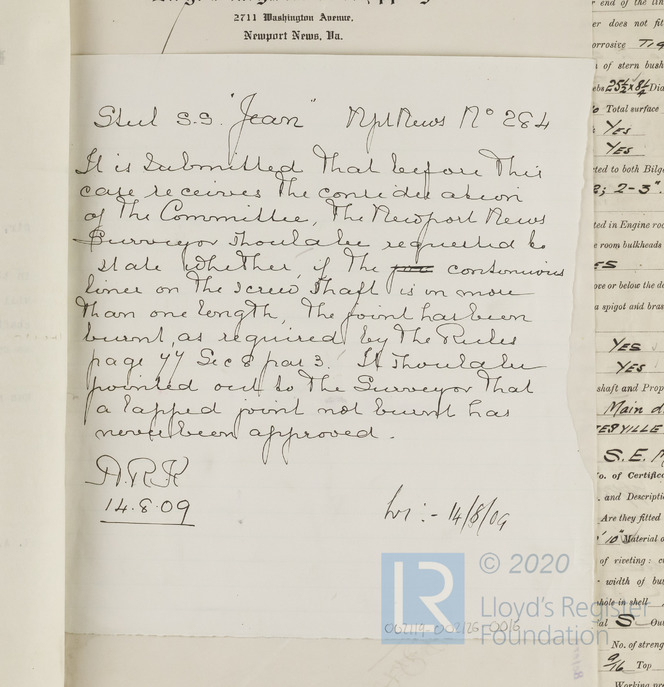 2711 Washington Avenue,
Newport News, Va.
Steel S.S. "Jean" Npt News No 284
It is submitted that before this
case receives the consideration
of the Committee, the Newport News
Surveyor should be requested to
state whether, if the continuous
liner on the screw shaft is in more
than one length, the joint has been
burnt, as required by the Rules
page 77 Sec 8 par 3. It should be
pointed out to the Surveyor that
a lapped joint not burnt has
never been approved.
A.R.K
14.8.09
14/8/09
© 2020
LR
Lloyd's Register
Foundation
002119-002126-0016
end of the
er does not fit
orrosive
of stern bush
Dia
Total surface
Yes
Yes
ted to both Bilge
; 2-3"
ted in Engine roo
e room bulkheads
ES
ove or below the de
a spigot and bras
Yes
Yes
shaft and Prop
Main d
S.E.
o. of Certific
and Descripti
Are they fitted
10" Material o
of riveting:
width of bu
hole in shell
al S Ou
No. of streng
9/16 Top
Working pre